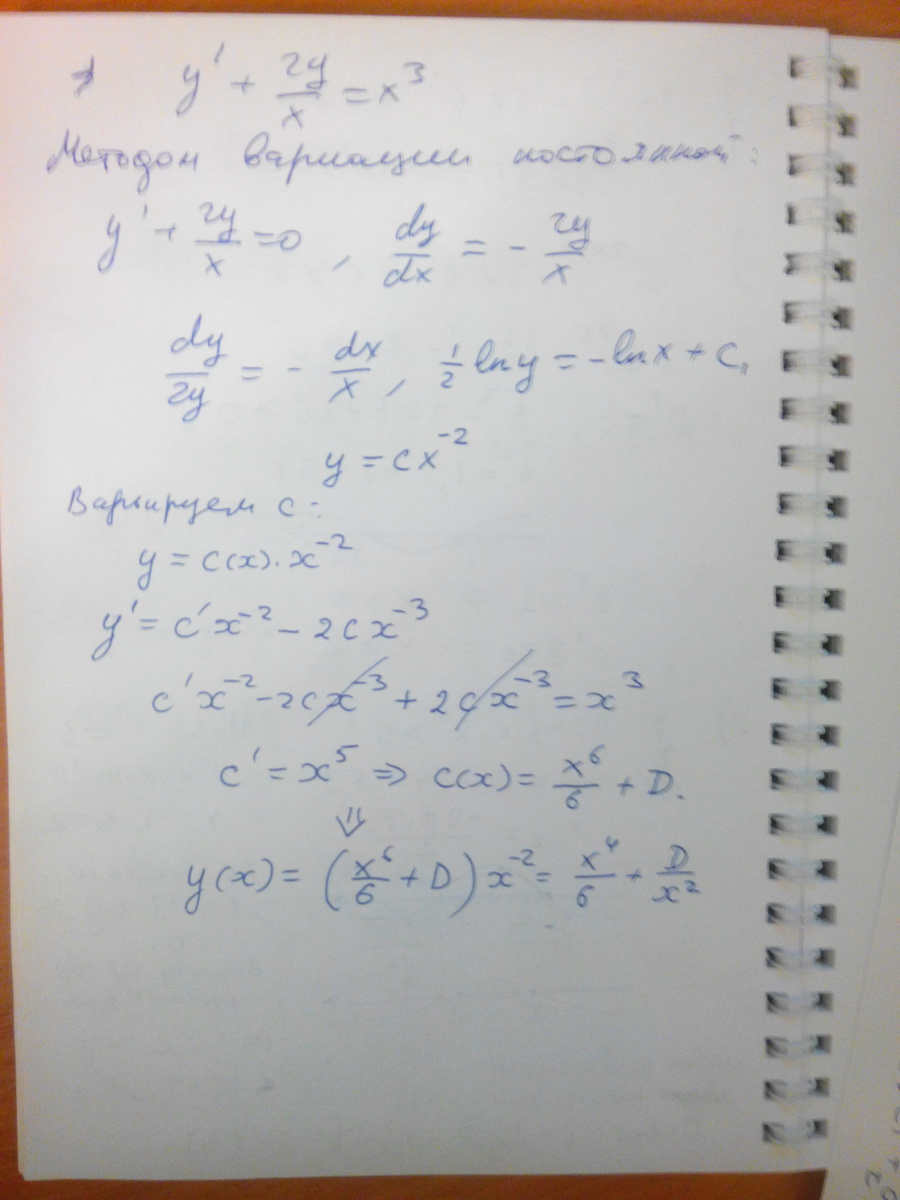 y' + 2y/x = x³
Методом вариации постоянной:
y' + 2y/x = 0 , dy/dx = - 2y/x
dy/2y = - dx/x , 1/2 ln y = -ln x + C₁,
y = cx⁻²
Варьируем c:
y = c(x)·x⁻²
y' = c'x⁻² - 2cx⁻³
c'x⁻² - 2cx⁻³ + 2cx⁻³ = x³
c' = x⁵ ⇒ c(x) = x⁶/6 + D.
⇓
y(x) = (x⁶/6 + D) x⁻² = x⁴/6 + D/x²